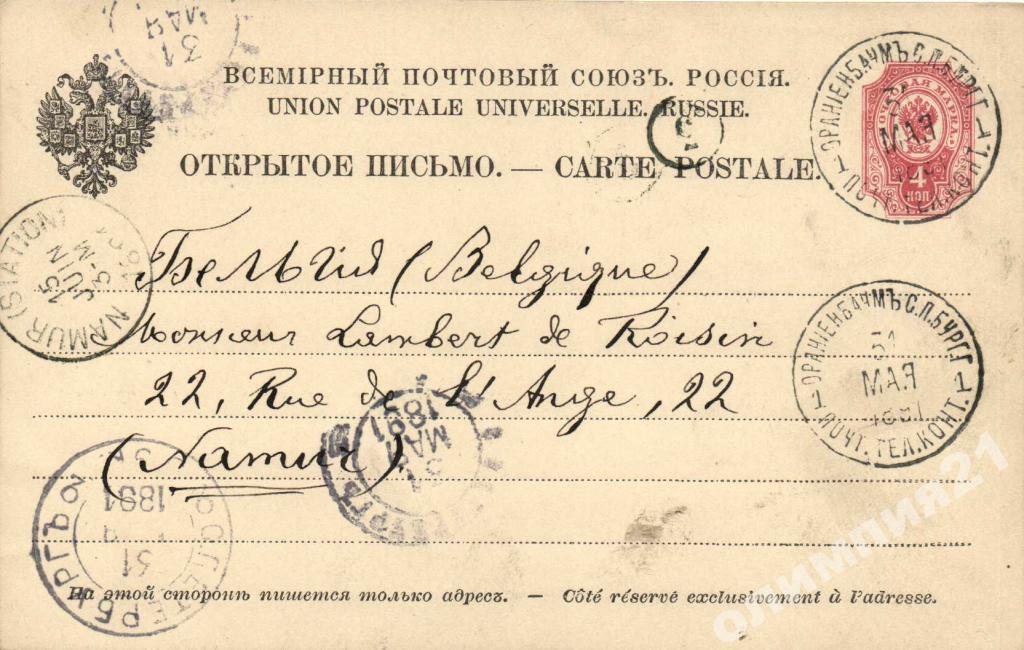 ВСЕМІРНЫЙ ПОЧТОВЫЙ СОЮЗЪ. РОССІЯ.
UNION POSTALE UNIVERSELLE. RUSSIE.
ОТКРЫТОЕ ПИСЬМО. — CARTE POSTALE.
31
МАЯ
ОРАНІЕНБАУМЪ С.П.БУРГ.Г.
МАЯ
МАРКА
4
КОП
NAMUR (STATION)
15
JUIN
3-M
Бельгія (Belgique)
Monsieur Lambert de Roisin
22, Rue de l'Ange, 22
(Namur)
ОРАНІЕНБАУМЪ С.П.БУРГ.Г.
31
МАЯ
1891
ПОЧТ. ТЕЛ. КОНТ.
31
МАЯ
1891
С.ПЕТЕРБУРГЪ
31
1891
На этой сторонѣ пишется только адресъ. — Côté réservé exclusivement à l'adresse.
ОЛИМПИЯ21